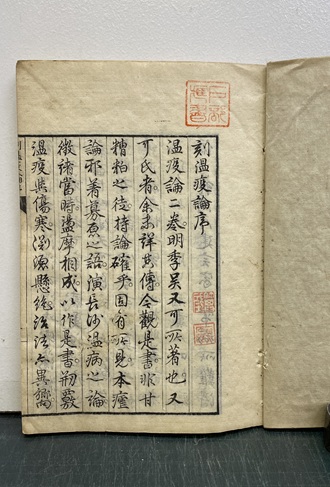 刻温疫論序
温疫論二卷明季吳又可所著也又
可氏者余未詳其傳今觀是書非甘
糟粕之徒持論確乎固有所見本瘧
論邪著募原之語演長沙温病之論
徵諸當時盪摩相成以作是書剏覈
温疫與傷寒渕源懸絶治法亦異嚮